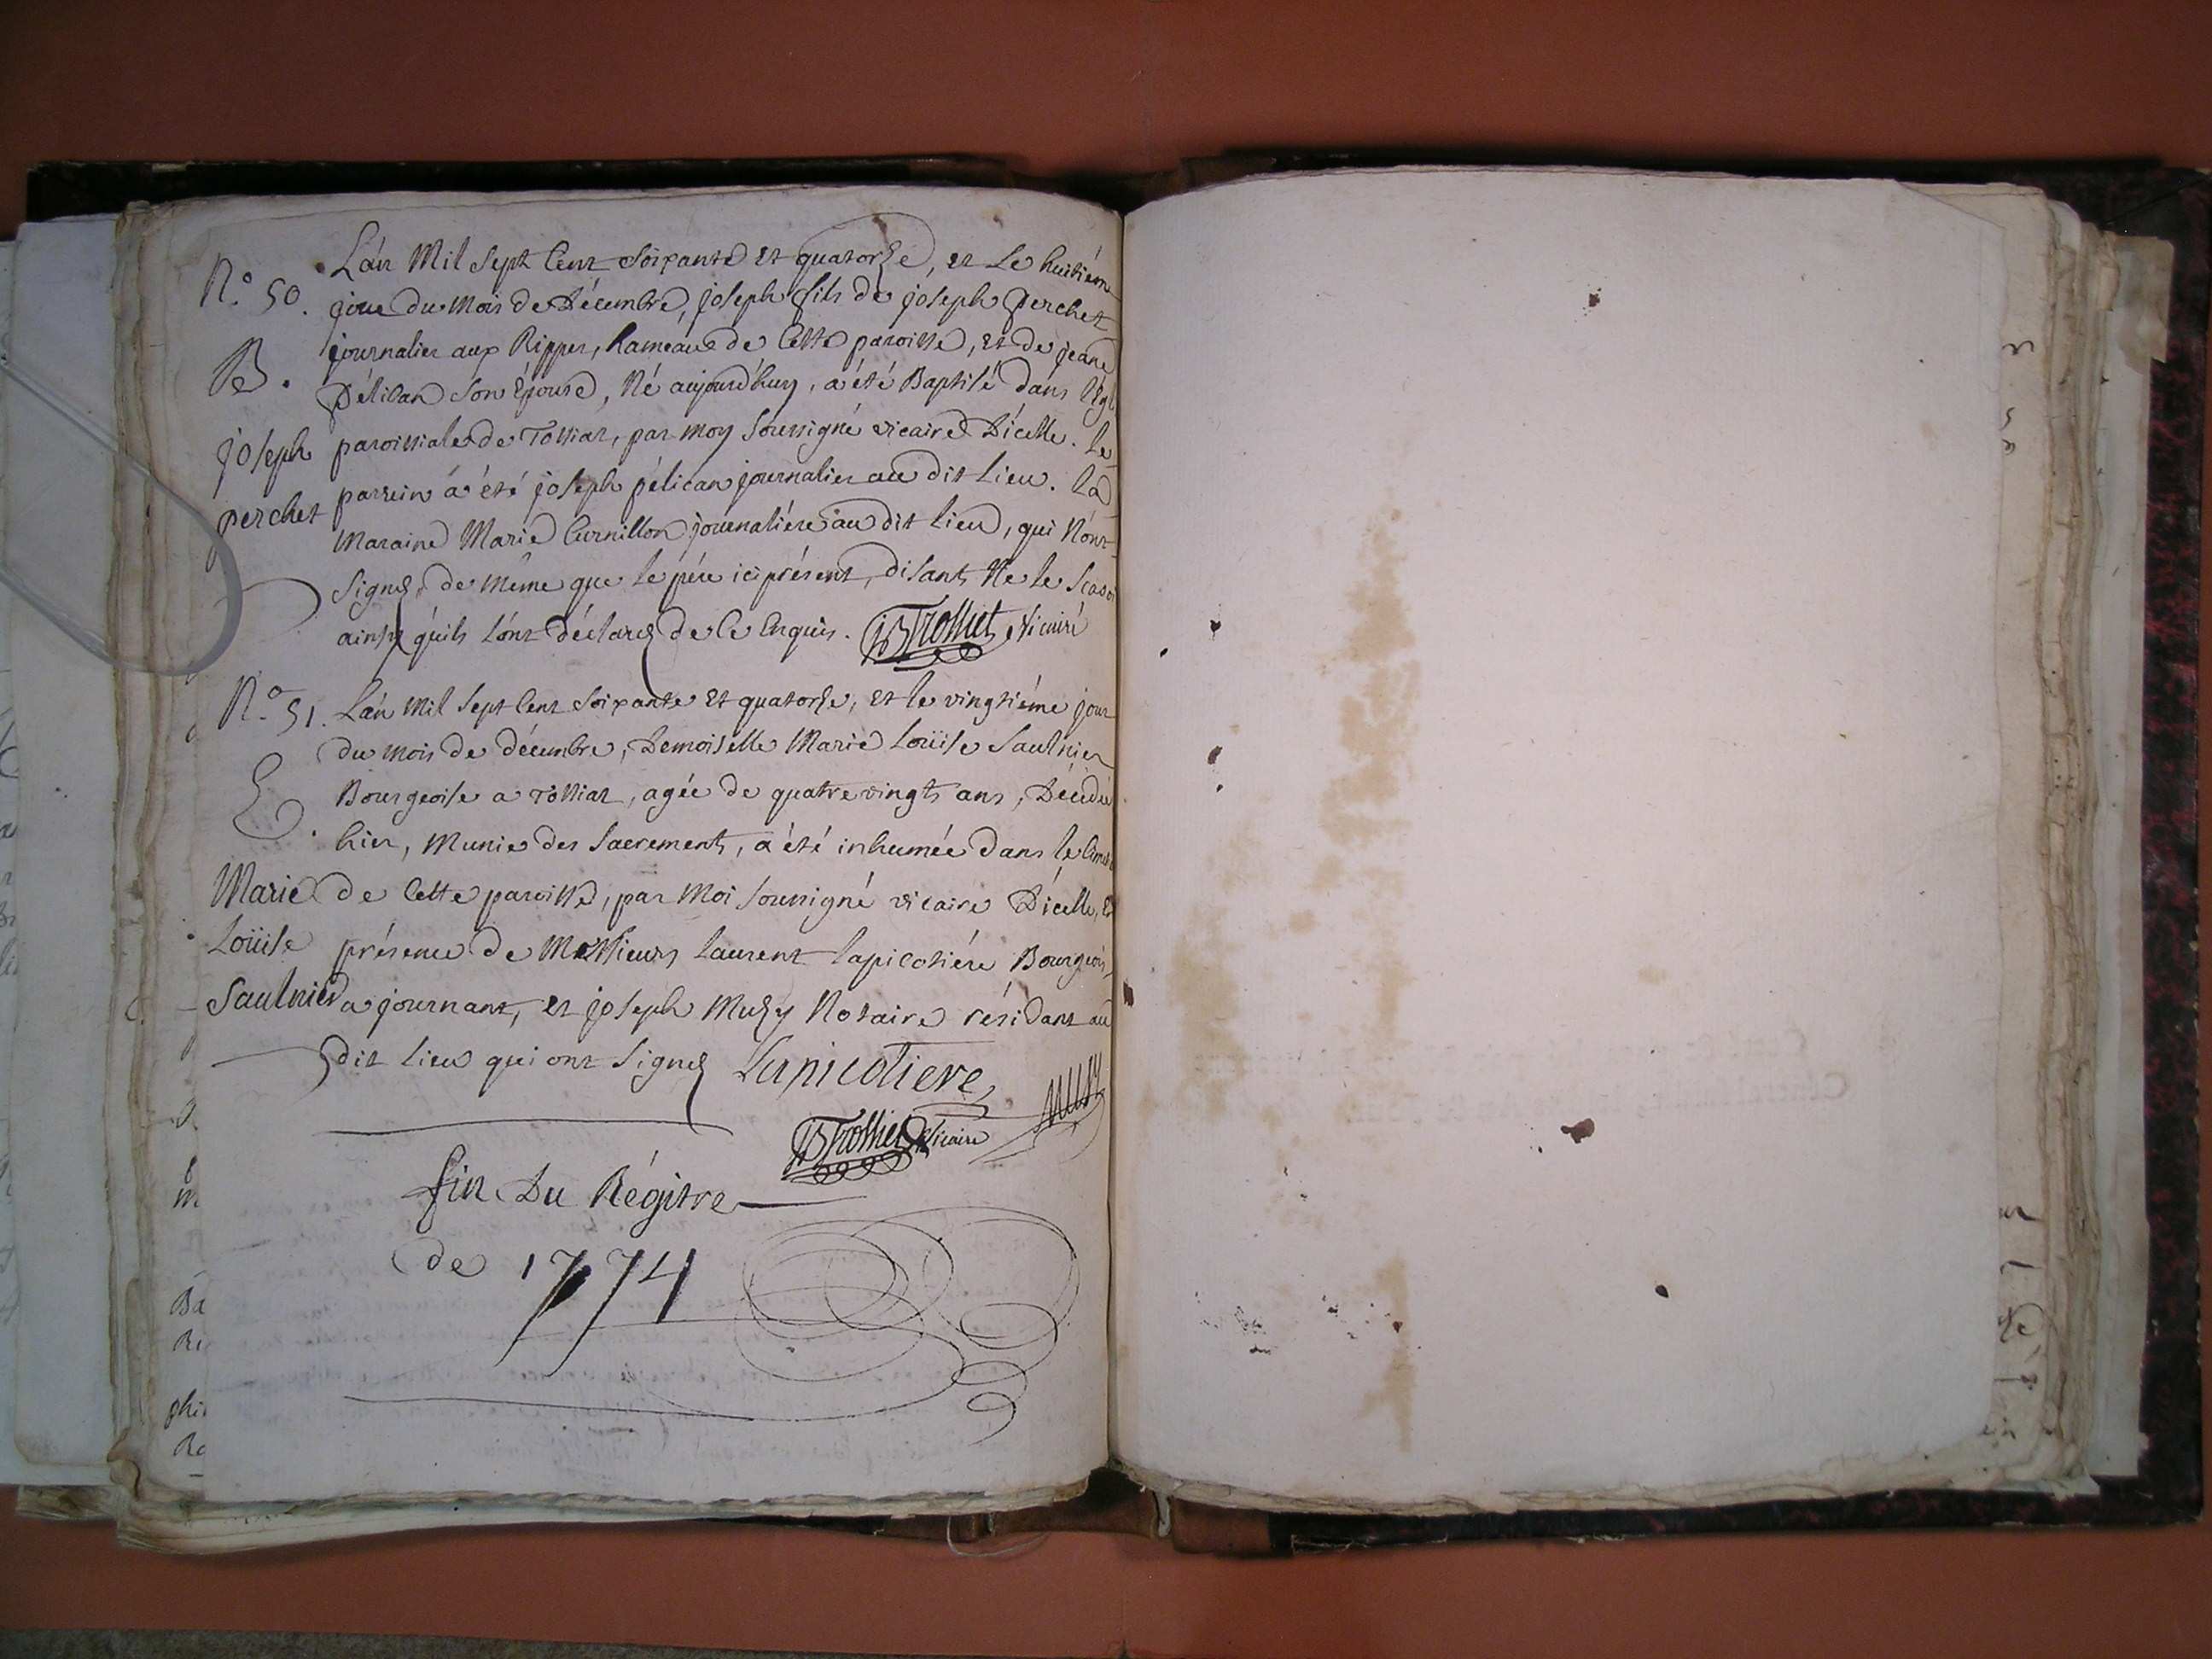 N.° 50. L'an Mil Sept Cent Soixante et quatorze, et Le huitiém
jour du Mois de Décembre, joseph fils de joseph perchet
journalier aux Rippes, hameaux de Cette paroisse, et de jeane
B. pélican Son Epouse, Né aujourd'huy, a été Baptisé dans l'Egl
joseph paroissiale de Tossiat, par moy Soussigné vicaire D'icelle. Le
perchet parrein a été joseph pélican journalier au dit Lieu. la
Maraine Marie Curnillon journaliére au dit lieu, qui N'ont
Signez de même que le pére ici présent, disants Ne le Scavoi
ainsy qu'ils L'ont déclarez de Ce Enquis. JB Trolliet Vicaire
N.° 51. L'an Mil Sept Cent Soixante et quatorze, et le vingtiéme jour
du mois de décembre, Demoiselle Marie Loüise Saulnier
E. Bourgeoise a Tossiat, agée de quatre vingts ans, Décédée
hier, Munie des Sacrements, a été inhumée dans le Cime
Marie de Cette paroisse, par Moi Soussigné vicaire D'icelle, E
Loüise présence de Messieurs Laurent Lapicotiére Bourgeois
Saulnier a journant, et joseph Muzy Notaire résidant au
dit Lieu qui ont Signez Lapicotiere Muzy
JB Trolliet Vicaire
fin Du Régitre
de 1774
Ba
phi